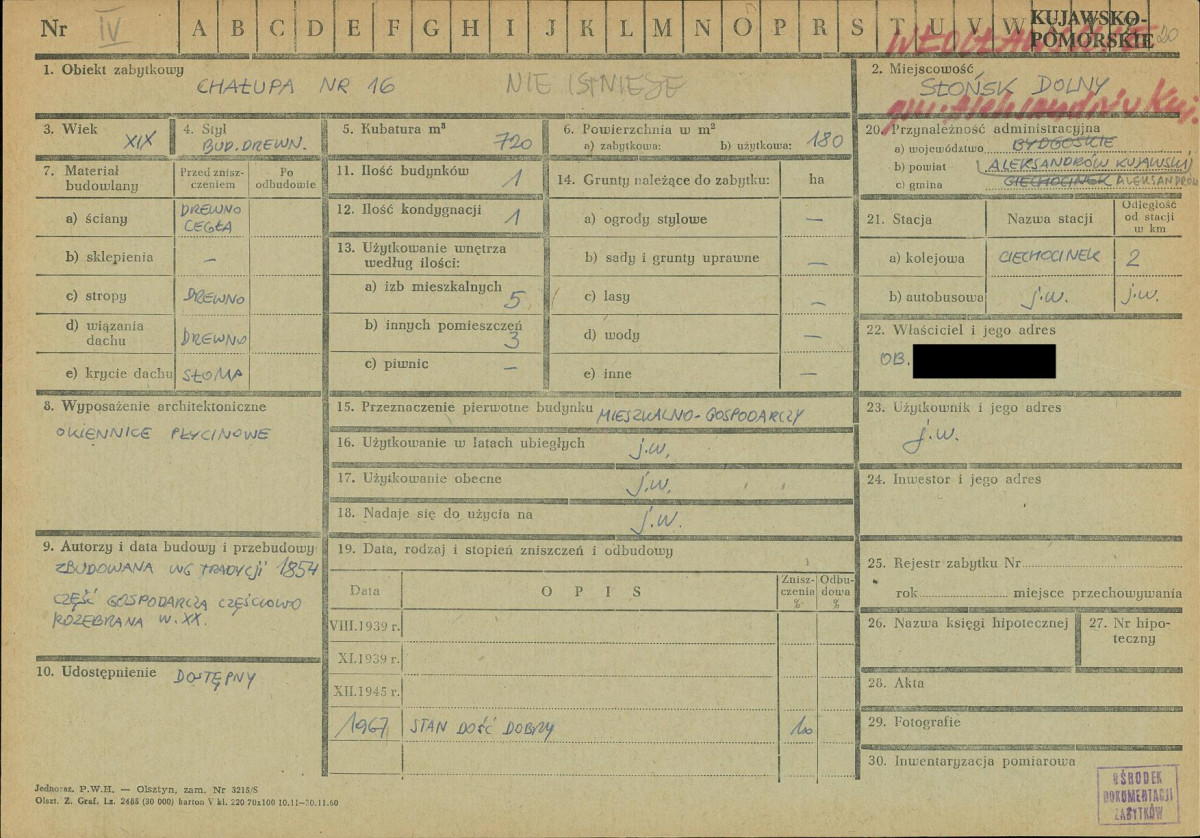 Nr IV A B C D E F G H I J K L M N O P R S T U V W KUJAWSKO-
POMORSKIE
WŁOCŁAWSKIE
1. Obiekt zabytkowy
CHAŁUPA NR 16 NIE ISTNIEJE
2. Miejscowość
SŁOŃSK DOLNY
gm. Aleksandrów Kuj.
3. Wiek XIX
4. Styl
BUD. DREWN.
5. Kubatura m³ 720
6. Powierzchnia w m²
a) zabytkowa: b) użytkowa: 180
7. Materiał
budowlany
Przed znisz-
czeniem
Po
odbudowie
a) ściany DREWNO
CEGŁA
b) sklepienia –
c) stropy DREWNO
d) wiązania
dachu DREWNO
e) krycie dachu SŁOMA
8. Wyposażenie architektoniczne
OKIENNICE PŁYCINOWE
9. Autorzy i data budowy i przebudowy
ZBUDOWANA WG TRADYCJI 1854
CZĘŚĆ GOSPODARCZA CZĘŚCIOWO
ROZEBRANA W. XX.
10. Udostępnienie DOSTĘPNY
11. Ilość budynków 1
12. Ilość kondygnacji 1
13. Użytkowanie wnętrza
według ilości:
a) izb mieszkalnych 5
b) innych pomieszczeń
3
c) piwnic –
14. Grunty należące do zabytku: ha
a) ogrody stylowe –
b) sady i grunty uprawne –
c) lasy –
d) wody –
e) inne –
15. Przeznaczenie pierwotne budynku MIESZKALNO-GOSPODARCZY
16. Użytkowanie w latach ubiegłych j.w.
17. Użytkowanie obecne j.w.
18. Nadaje się do użycia na j.w.
19. Data, rodzaj i stopień zniszczeń i odbudowy
Data O P I S Znisz-
czenia
% Odbu-
dowa
%
VIII.1939 r.
XI.1939 r.
XII.1945 r.
1967 STAN DOŚĆ DOBRY 10
20. Przynależność administracyjna
a) województwo BYDGOSKIE
b) powiat ALEKSANDRÓW KUJAWSKI
c) gmina CIECHOCINEK ALEKSANDRÓW
21. Stacja Nazwa stacji Odległość
od stacji
w km
a) kolejowa CIECHOCINEK 2
b) autobusowa j.w. j.w.
22. Właściciel i jego adres
OB.
23. Użytkownik i jego adres
j.w.
24. Inwestor i jego adres
25. Rejestr zabytku Nr
rok miejsce przechowywania
26. Nazwa księgi hipotecznej
27. Nr hipo-
teczny
28. Akta
29. Fotografie
30. Inwentaryzacja pomiarowa
OŚRODEK
DOKUMENTACJI
ZABYTKÓW
Jednoraz. P.W.H. — Olsztyn, zam. Nr 3215/S
Olszt. Z. Graf. Lz. 2485 (30 000) karton V kl. 220 70x100 10.11—30.11.60